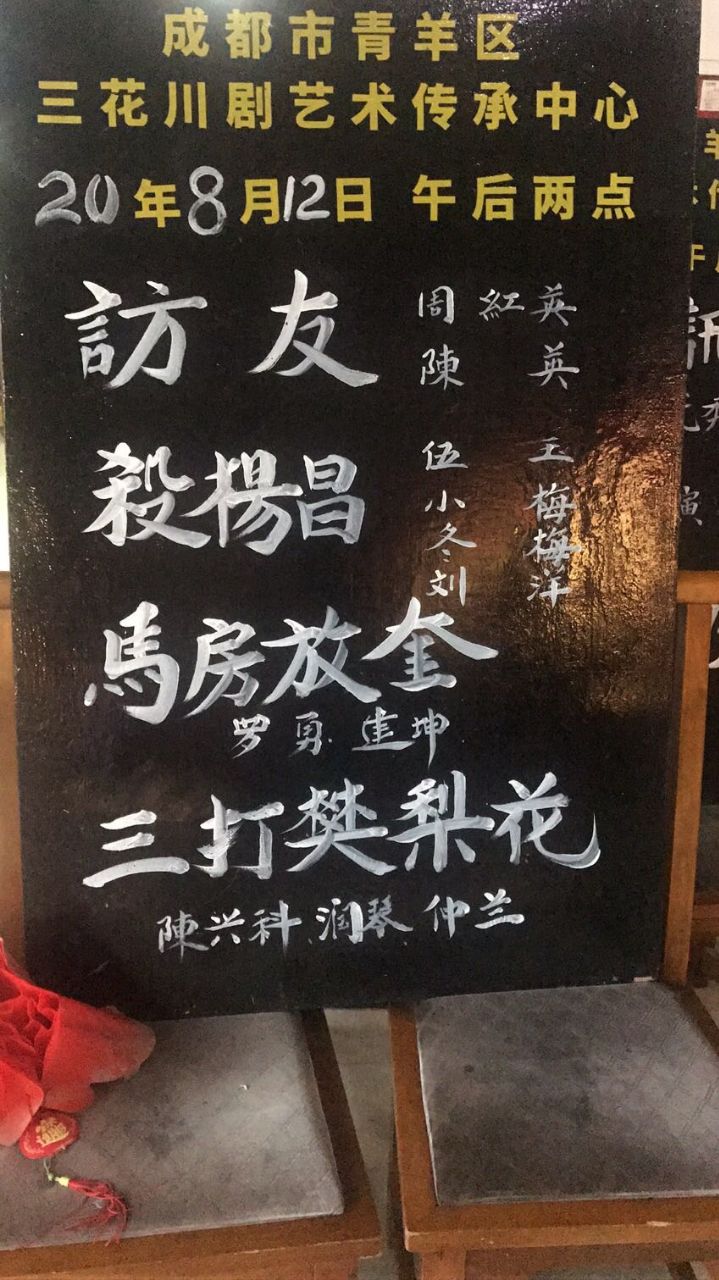 成都市青羊区
三花川剧艺术传承中心
20年8月12日 午后两点
訪友 周紅英
陳英
殺楊昌 伍玉
小梅
冬梅
刘洋
馬房放奎
罗勇 建坤
三打樊梨花
陳兴科 润琴 仲兰